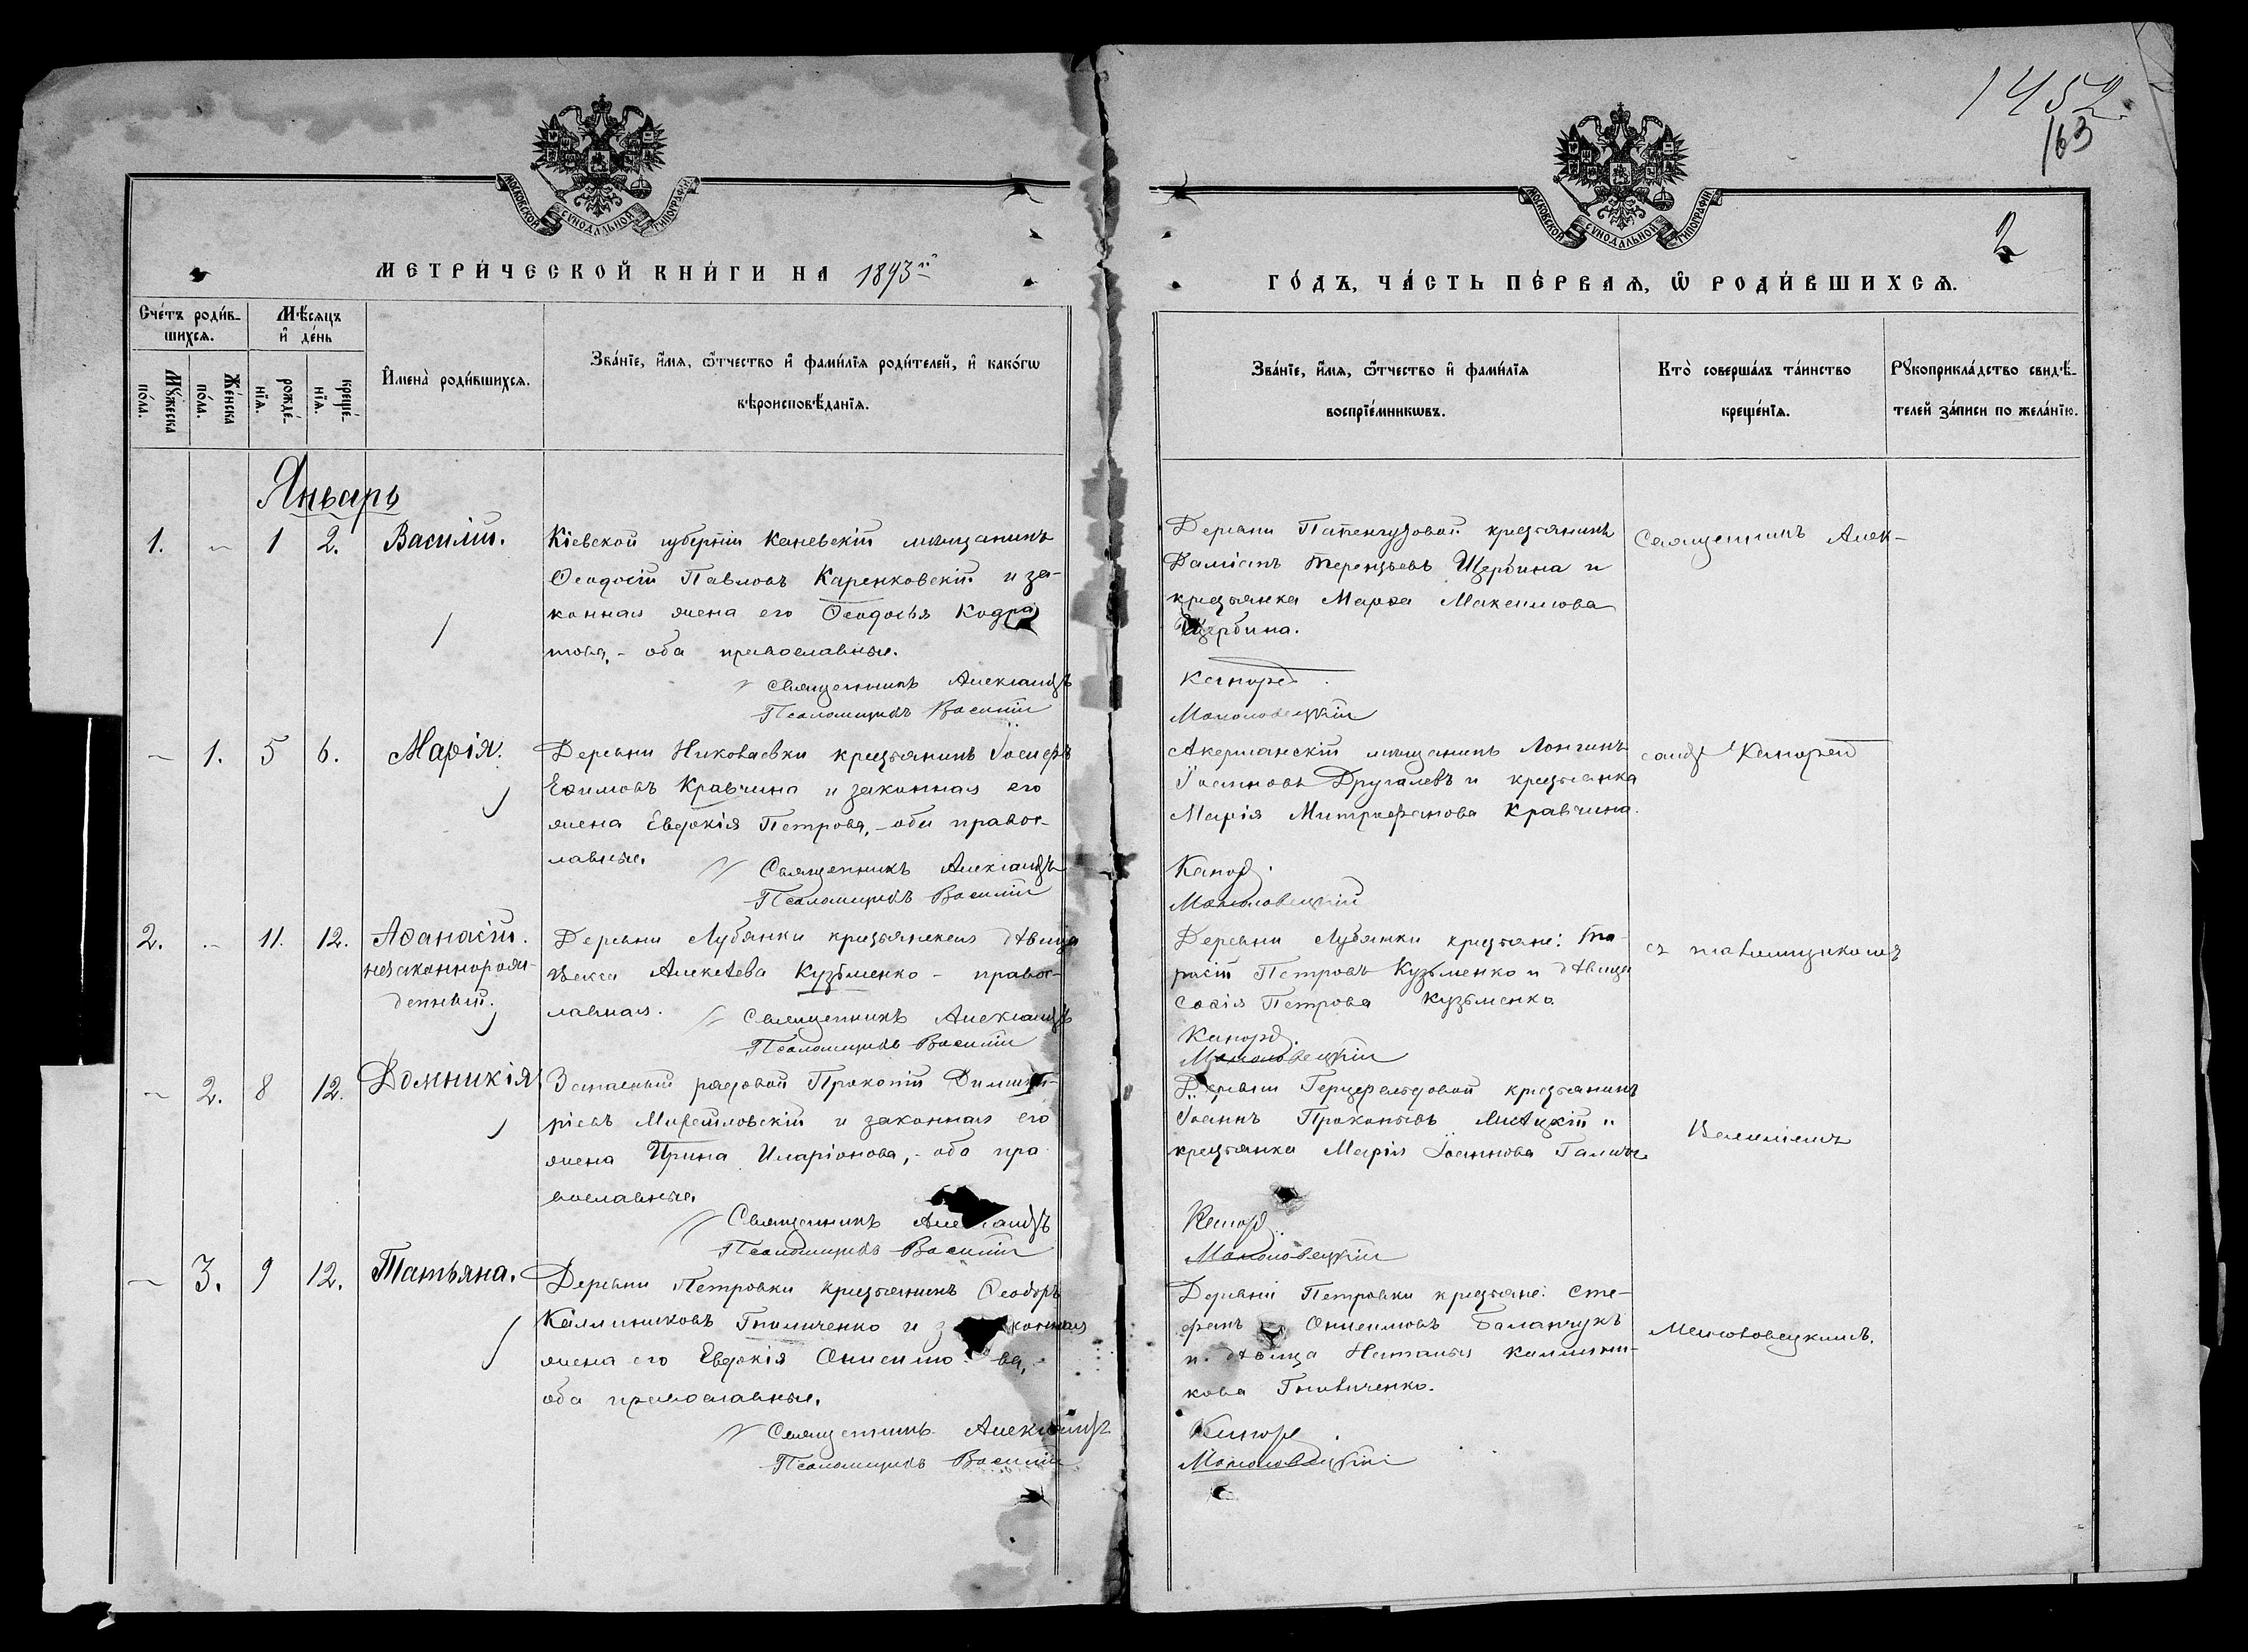 1452
163
2
МОСКОВСКОЙ СѴНОДАЛЬНОЙ ТИПОГРАФІИ
МОСКОВСКОЙ СѴНОДАЛЬНОЙ ТИПОГРАФІИ
МЕТРИ́ЧЕСКОЙ КНИ́ГИ НА 1893й
ГО́ДЪ, ЧА́СТЬ ПЕ́РВАѦ, Ѿ РОДИ́ВШИХСѦ.
Сче́тъ роди́в-
шихсѧ.
Мꙋ́жеска
по́ла.
Же́нска
по́ла.
Мѣ́сѧцъ
и҆ де́нь
рожде́-
нїѧ.
креще́-
нїѧ.
И҆мена̀ роди́вшихсѧ.
Зва́нїе, и҆́мѧ, ѻ҆́тчество и҆ фами́лїѧ роди́телей, и҆ како́гѡ
вѣроисповѣ́данїѧ.
Зва́нїе, и҆́мѧ, ѻ҆́тчество и҆ фами́лїѧ
воспрїе́мникѡвъ.
Кто̀ соверша́лъ та́инство
креще́нїѧ.
Рꙋкоприкла́дство свидѣ́-
телей за́писи по жела́нїю.
Январь
1. - 1 2. Василій.
Кіевской губерніи Каневскій мѣщанинъ
Ѳеодосій Павловъ Каренковскій и за-
конная жена его Ѳеодосья Кодра
това, - оба православные.
Священникъ Александръ
Псаломщикъ Василій
Деревни крестьянинъ
Даміанъ Терентьевъ Щербина и
крестьянка Марѳа Максимова
Щербина.
Священникъ Алек-
- 1. 5 6. Марія.
Деревни Николаевки крестьянинъ Іосифъ
Ефимовъ Кравчина и законная его
жена Евдокія Петрова, - оба правос-
лавные.
Священникъ Александръ
Псаломщикъ Василій
Акерманскій мѣщанинъ Лонгинъ
Іоанновъ Другалевъ и крестьянка
Марія Митрофанова Кравчина.
2. - 11. 12. Аѳанасій.
незаконнорож-
денный.
Деревни Лубянки крестьянская дѣвица
Ѳекла Алексѣева Кузьменко - правос-
лавная.
Священникъ Александръ
Псаломщикъ Василій
Деревни Лубянки крестьяне: Та-
расій Петровъ Кузьменко и дѣвица
Софія Петрова Кузьменко.
съ псаломщикомъ
- 2. 8 12. Домникія
Запасный рядовой Прокопій Димит-
ріевъ и законная его
жена Ирина Иларіонова, - оба пра
вославные.
Священникъ Александръ
Псаломщикъ Василій
Деревни крестьянинъ
Іоаннъ Прокопьевъ и
крестьянка Марія Іоаннова
Василіемъ
- 3. 9 12. Татьяна.
Деревни Петровки крестьянинъ Ѳеодоръ
Каллиниковъ Гниличенко и законная
жена его Евдокія Онисимова, -
оба православные.
Священникъ Александръ
Псаломщикъ Василій
Деревни Петровки крестьяне: Сте-
фанъ Онисимовъ Баланчукъ
и дѣвица Наталья Каллини-
кова Гниличенко.